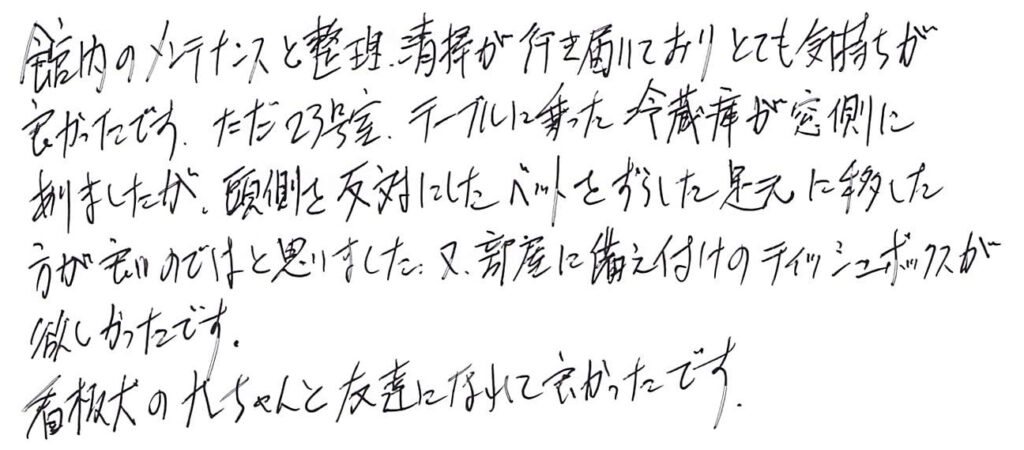 館内のメンテナンスと整理、清掃が行き届いておりとても気持ちが
良かったです。ただ23号室、テーブルに乗った冷蔵庫が窓側に
ありましたが、頭側を反対にしたベットをずらした足元に移した
方が良いのではと思いました。又、部屋に備え付けのティッシュボックスが
欲しかったです。
看板犬の九ちゃんと友達になれて良かったです。